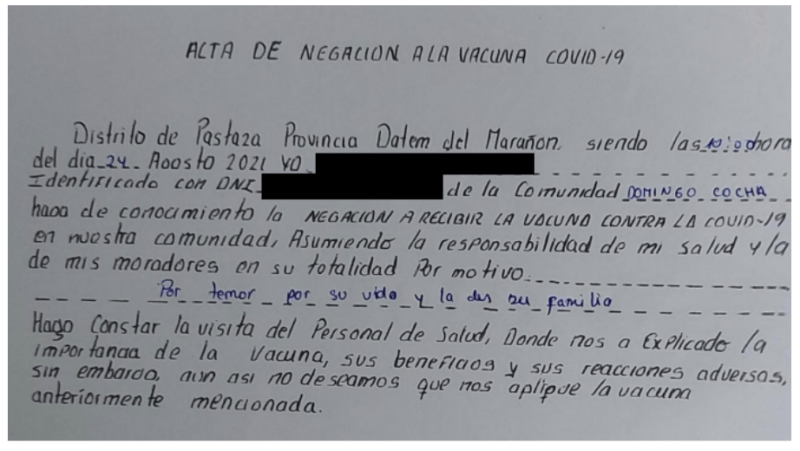 ACTA DE NEGACION A LA VACUNA COVID-19
Distrito de Pastaza Provincia Datem del Marañon, siendo las 10:00 hora
del dia 24 Agosto 2021 YO
Identificado con DNI de la Comunidad DOMINGO COCHA
hago de conocimiento la NEGACION A RECIBIR LA VACUNA CONTRA LA COVID-19
en nuestra comunidad, Asumiendo la responsabilidad de mi salud y la
de mis moradores en su totalidad Por motivo.
Por temor por su vida y la des su familia
Hago Constar la visita del Personal de Salud, Donde nos a Explicado la
importancia de la Vacuna, sus beneficios y sus reacciones adversas,
sin embargo, aun asi no deseamos que nos aplique la vacuna
anteriormente mencionada.